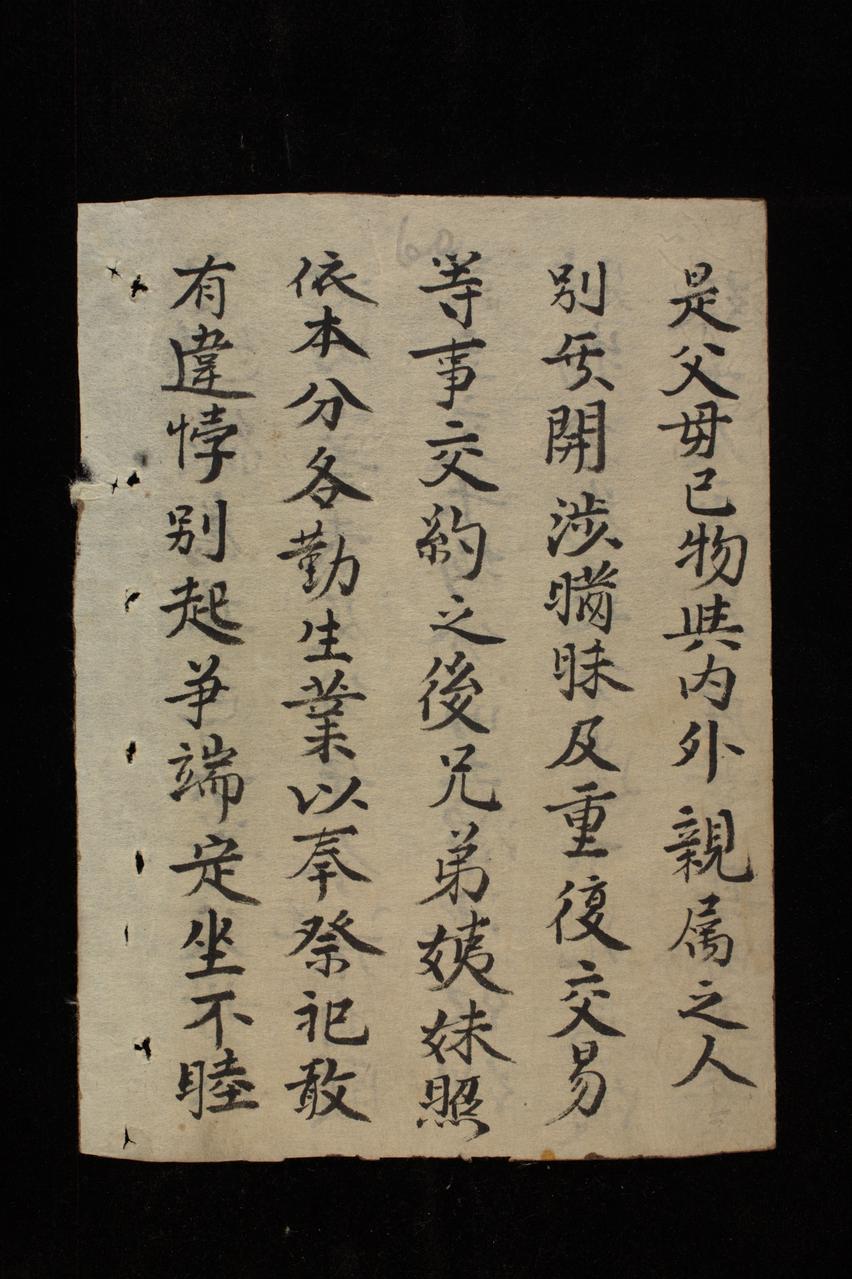 是父毋已物與内外親属之人
別無開涉瞞昧及重復交易
等事交約之後兄弟姨妹照
依本分各勤生業以奉祭祀敢
有違悖别起爭端定坐不睦
60